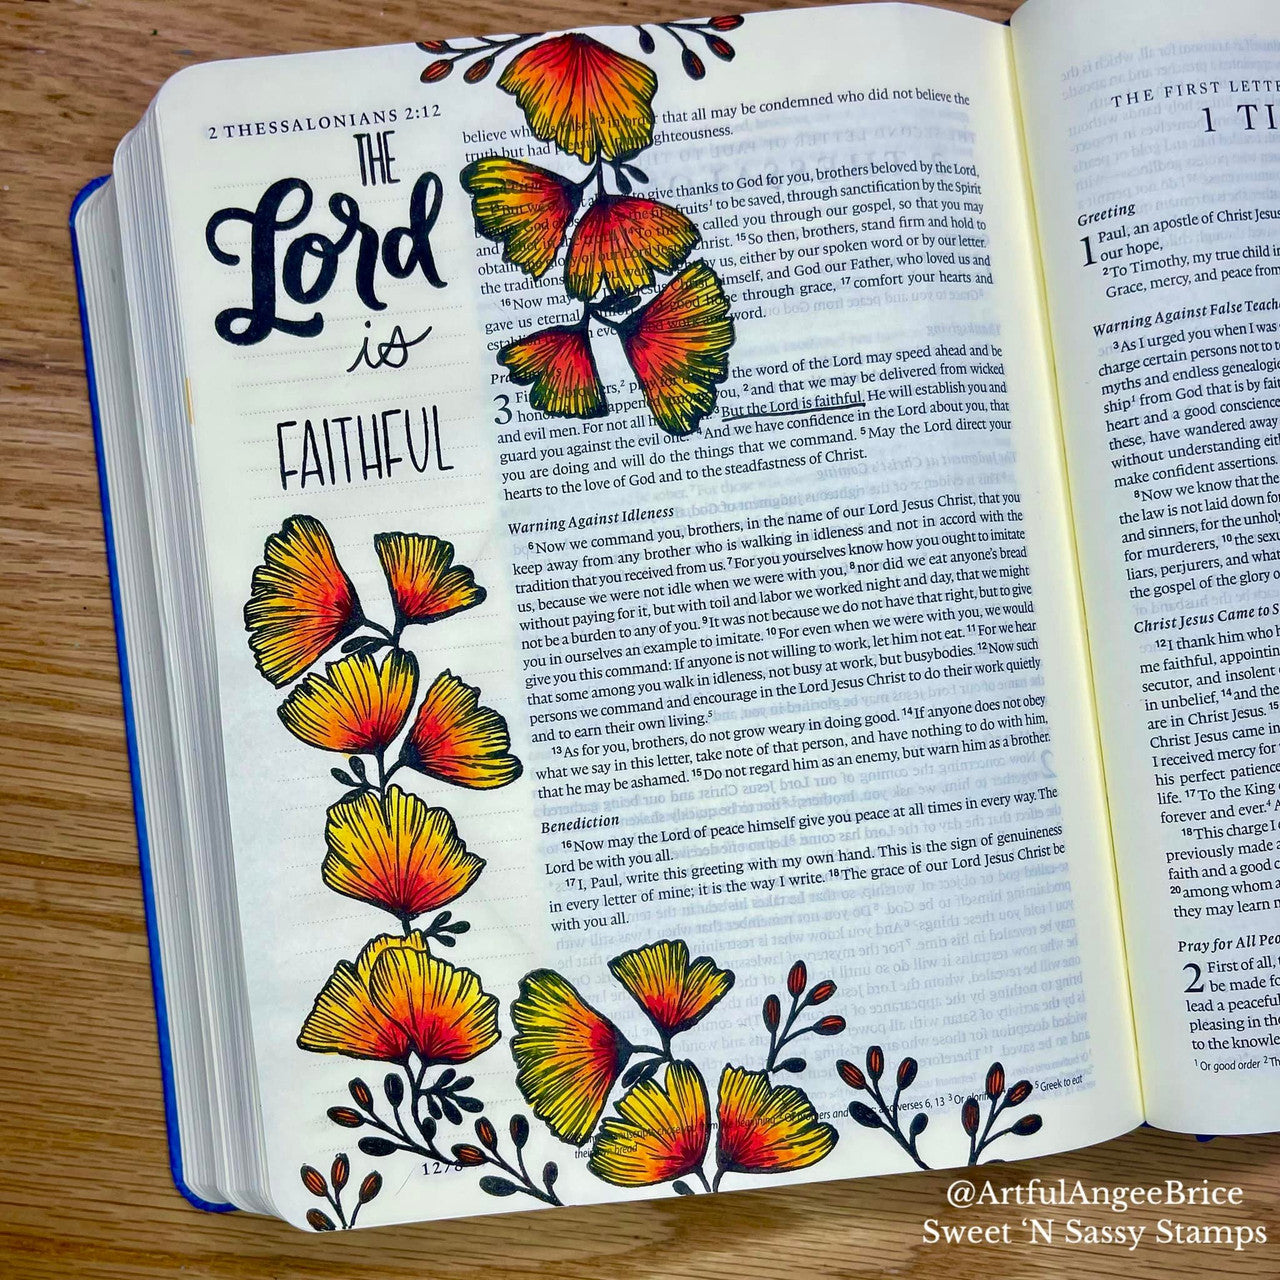 2 THESSALONIANS 2:12
THE
Lord
is
FAITHFUL
believe that all may be condemned who did not believe the
truth but had
to give thanks to God for you, brothers beloved by the Lord,
fruits¹ to be saved, through sanctification by the Spirit
called you through our gospel, so that you may
and ¹⁵So then, brothers, stand firm and hold to
obtain by us, either by our spoken word or by our letter.
the traditions and God our Father, who loved us and
¹⁶Now may through grace, ¹⁷comfort your hearts and
gave us eternal word.
3 the word of the Lord may speed ahead and be
²and that we may be delivered from wicked
and evil men. For not all But the Lord is faithful. He will establish you and
guard you against the evil ⁴And we have confidence in the Lord about you, that
you are doing and will do the things that we command. ⁵May the Lord direct your
hearts to the love of God and to the steadfastness of Christ.
Warning Against Idleness
⁶Now we command you, brothers, in the name of our Lord Jesus Christ, that you
keep away from any brother who is walking in idleness and not in accord with the
tradition that you received from us. ⁷For you yourselves know how you ought to imitate
us, because we were not idle when we were with you, ⁸nor did we eat anyone's bread
without paying for it, but with toil and labor we worked night and day, that we might
not be a burden to any of you. ⁹It was not because we do not have that right, but to give
you in ourselves an example to imitate. ¹⁰For even when we were with you, we would
give you this command: If anyone is not willing to work, let him not eat. ¹¹For we hear
that some among you walk in idleness, not busy at work, but busybodies. ¹²Now such
persons we command and encourage in the Lord Jesus Christ to do their work quietly
and to earn their own living.⁵
¹³As for you, brothers, do not grow weary in doing good. ¹⁴If anyone does not obey
what we say in this letter, take note of that person, and have nothing to do with him,
that he may be ashamed. ¹⁵Do not regard him as an enemy, but warn him as a brother.
Benediction
¹⁶Now may the Lord of peace himself give you peace at all times in every way. The
Lord be with you all.
¹⁷I, Paul, write this greeting with my own hand. This is the sign of genuineness
in every letter of mine; it is the way I write. ¹⁸The grace of our Lord Jesus Christ be
with you all.
verses 6, 13 ³Or ⁵Greek to eat
their own bread
THE FIRST LETTE
1 TI
Greeting
1 Paul, an apostle of Christ Jesus
our hope,
²To Timothy, my true child i
Grace, mercy, and peace from
Warning Against False Teach
³As I urged you when I was
charge certain persons not to t
myths and endless genealogie
ship¹ from God that is by fai
heart and a good conscience
these, have wandered away
without understanding eit
make confident assertions.
⁸Now we know that the
the law is not laid down for
and sinners, for the unhol
for murderers, ¹⁰the sexu
liars, perjurers, and what
the gospel of the glory o
Christ Jesus Came to S
¹²I thank him who
me faithful, appointin
secutor, and insolent
in unbelief, ¹⁴and the
are in Christ Jesus. ¹⁵
Christ Jesus came in
I received mercy for
his perfect patience
life. ¹⁷To the King
forever and ever.⁴ A
¹⁸This charge I
previously made a
faith and a good c
²⁰among whom a
they may learn n
Pray for All Peo
2 First of all,
be made fo
lead a peaceful
pleasing in the
to the knowle
¹Or good order ²Th
@ArtfulAngeeBrice
Sweet 'N Sassy Stamps